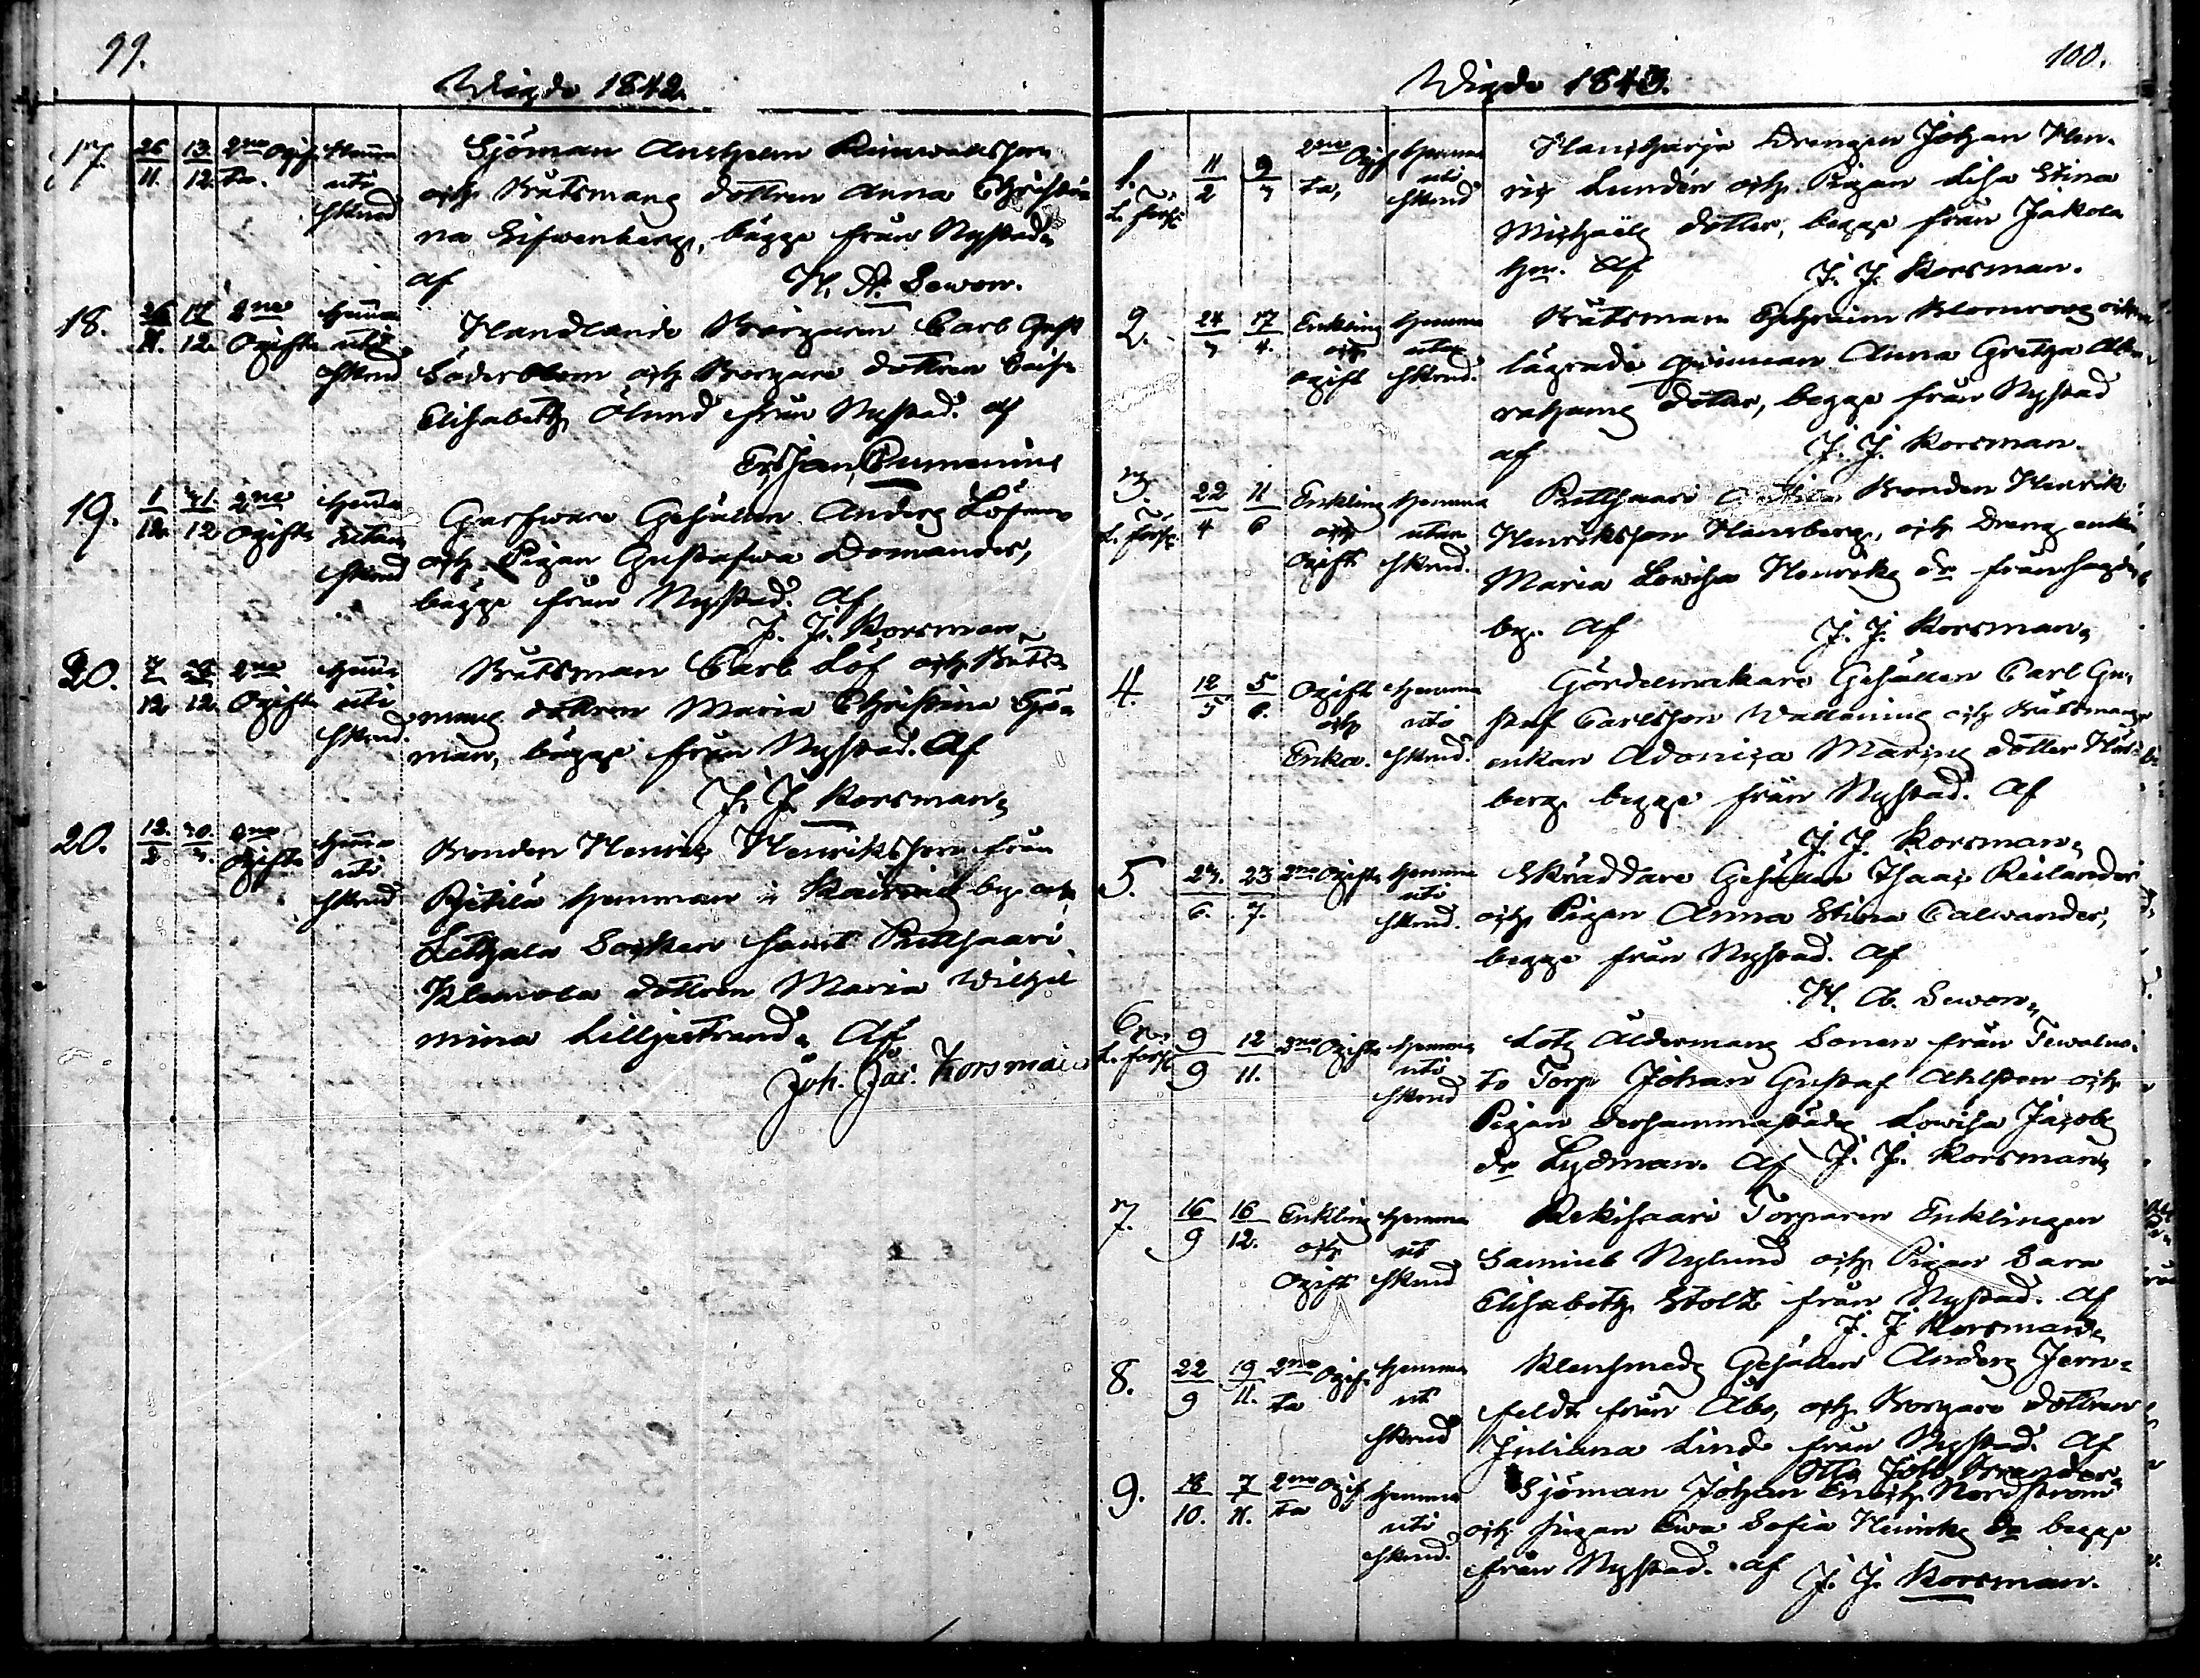 99.
Wigde 1842.
17. 26/11. 13/12. 2ne Ogifta. Hemma uti skrud
Sjöman Anshelm
och Båtsmans dottren Anna Christi-
na begge från Nystad
af H. A. Sewon.
18. 26/11. 17/12. 2ne Ogifta Hemma uti skrud
Handlande Borgaren Carl Gust
Söderblom och Borgare dottren Caisa
Elisabeth Ölund från Nystad. af
19. 1/12. 31/12 2ne Ogifta Hemma utan skrud
Garfware Gesällen Anders Löfman
och Pigan Gustafwa Domander,
begge från Nystad. af
J. J. Korsman.
20. 7/12 26/12. 2ne Ogifta Hemma uti skrud.
Båtsman Carl Löf och Båts-
mans dottren Maria Christina Sjö-
man, begge från Nystad. Af
J. J. Korsman.
20. 12./2 30./3. 2ne Ogifta Hemma uti skrud
Bonden Henrik Henriksson från
hemman i by och
Letala Socken samt Putsaari
Klemola dottren Maria Wilhel
mina Lilljestrand. Af
Joh. Jac. Korsman
100.
Wigde 1843.
1. L. förs: 11/2 9/3 2ne Ogifta, Hemma uti skrud
Drengen Johan Hen-
ric Lundén och Pigan Lisa Stina
Michaëls dotter, begge från Jakola
hn. af J. J. Korsman.
2. 24/3 17/4. Enkling och ogift Hemma utan skrud.
Båtsman Ephraim Blomroos och
lägrade qwinnan Anna Gretha Ab-
rahams dotter, begge från Nystad
af J. J. Korsman.
3. L. förs: 22/4 11/6 Enkling och Ogift Hemma utan skrud.
Putsaari Bonden Henrik
Henriksson och Dreng enkan
Maria Lowisa Henriks dr från
by. af J. J. Korsman.
4. 12/5 5/6. Ogift och Enka. Hemma uti skrud.
Gördelmakare Gesällen Carl Gu-
staf Carlsson Wallenius och Båtsmans
enkan Adonica dotter
berg begge från Nystad. Af
J. J. Korsman.
5. 23./6. 23/7. 2ne Ogifta Hemma uti skrud.
Skräddare Gesällen Isaac Reilander
och Pigan Anna Stina Calwander,
begge från Nystad. Af
H. A. Sewon.
6. L. förs: 9/9 12/11. 2ne Ogifta Hemma uti skrud
Lots Åldermans Sonen från
Torp Johan Gustaf Ahlsten och
Pigan dersammastädes Lowisa Jacobs
dr Lydman. Af J. J. Korsman.
7. 16/9 16/12. Enkling och Ogift Hemma uti skrud
Rekisaari Torparen Enklingen
Samuel Nylund och Pigan Sara
Elisabeth Stolt från Nystad. Af
J. J. Korsman.
8. 22/9 19/11. 2ne Ogifta Hemma uti skrud
Klensmeds Gesällen Anders Jern-
feldt från Åbo, och Borgare dottren
Juliana Lind från Nystad. Af
9. 18/10. 7/11. 2ne Ogifta Hemma uti skrud.
Sjöman Johan Nordström
och pigan Ewa Sofia Henriks dr begge
från Nystad. af J. J. Korsman.